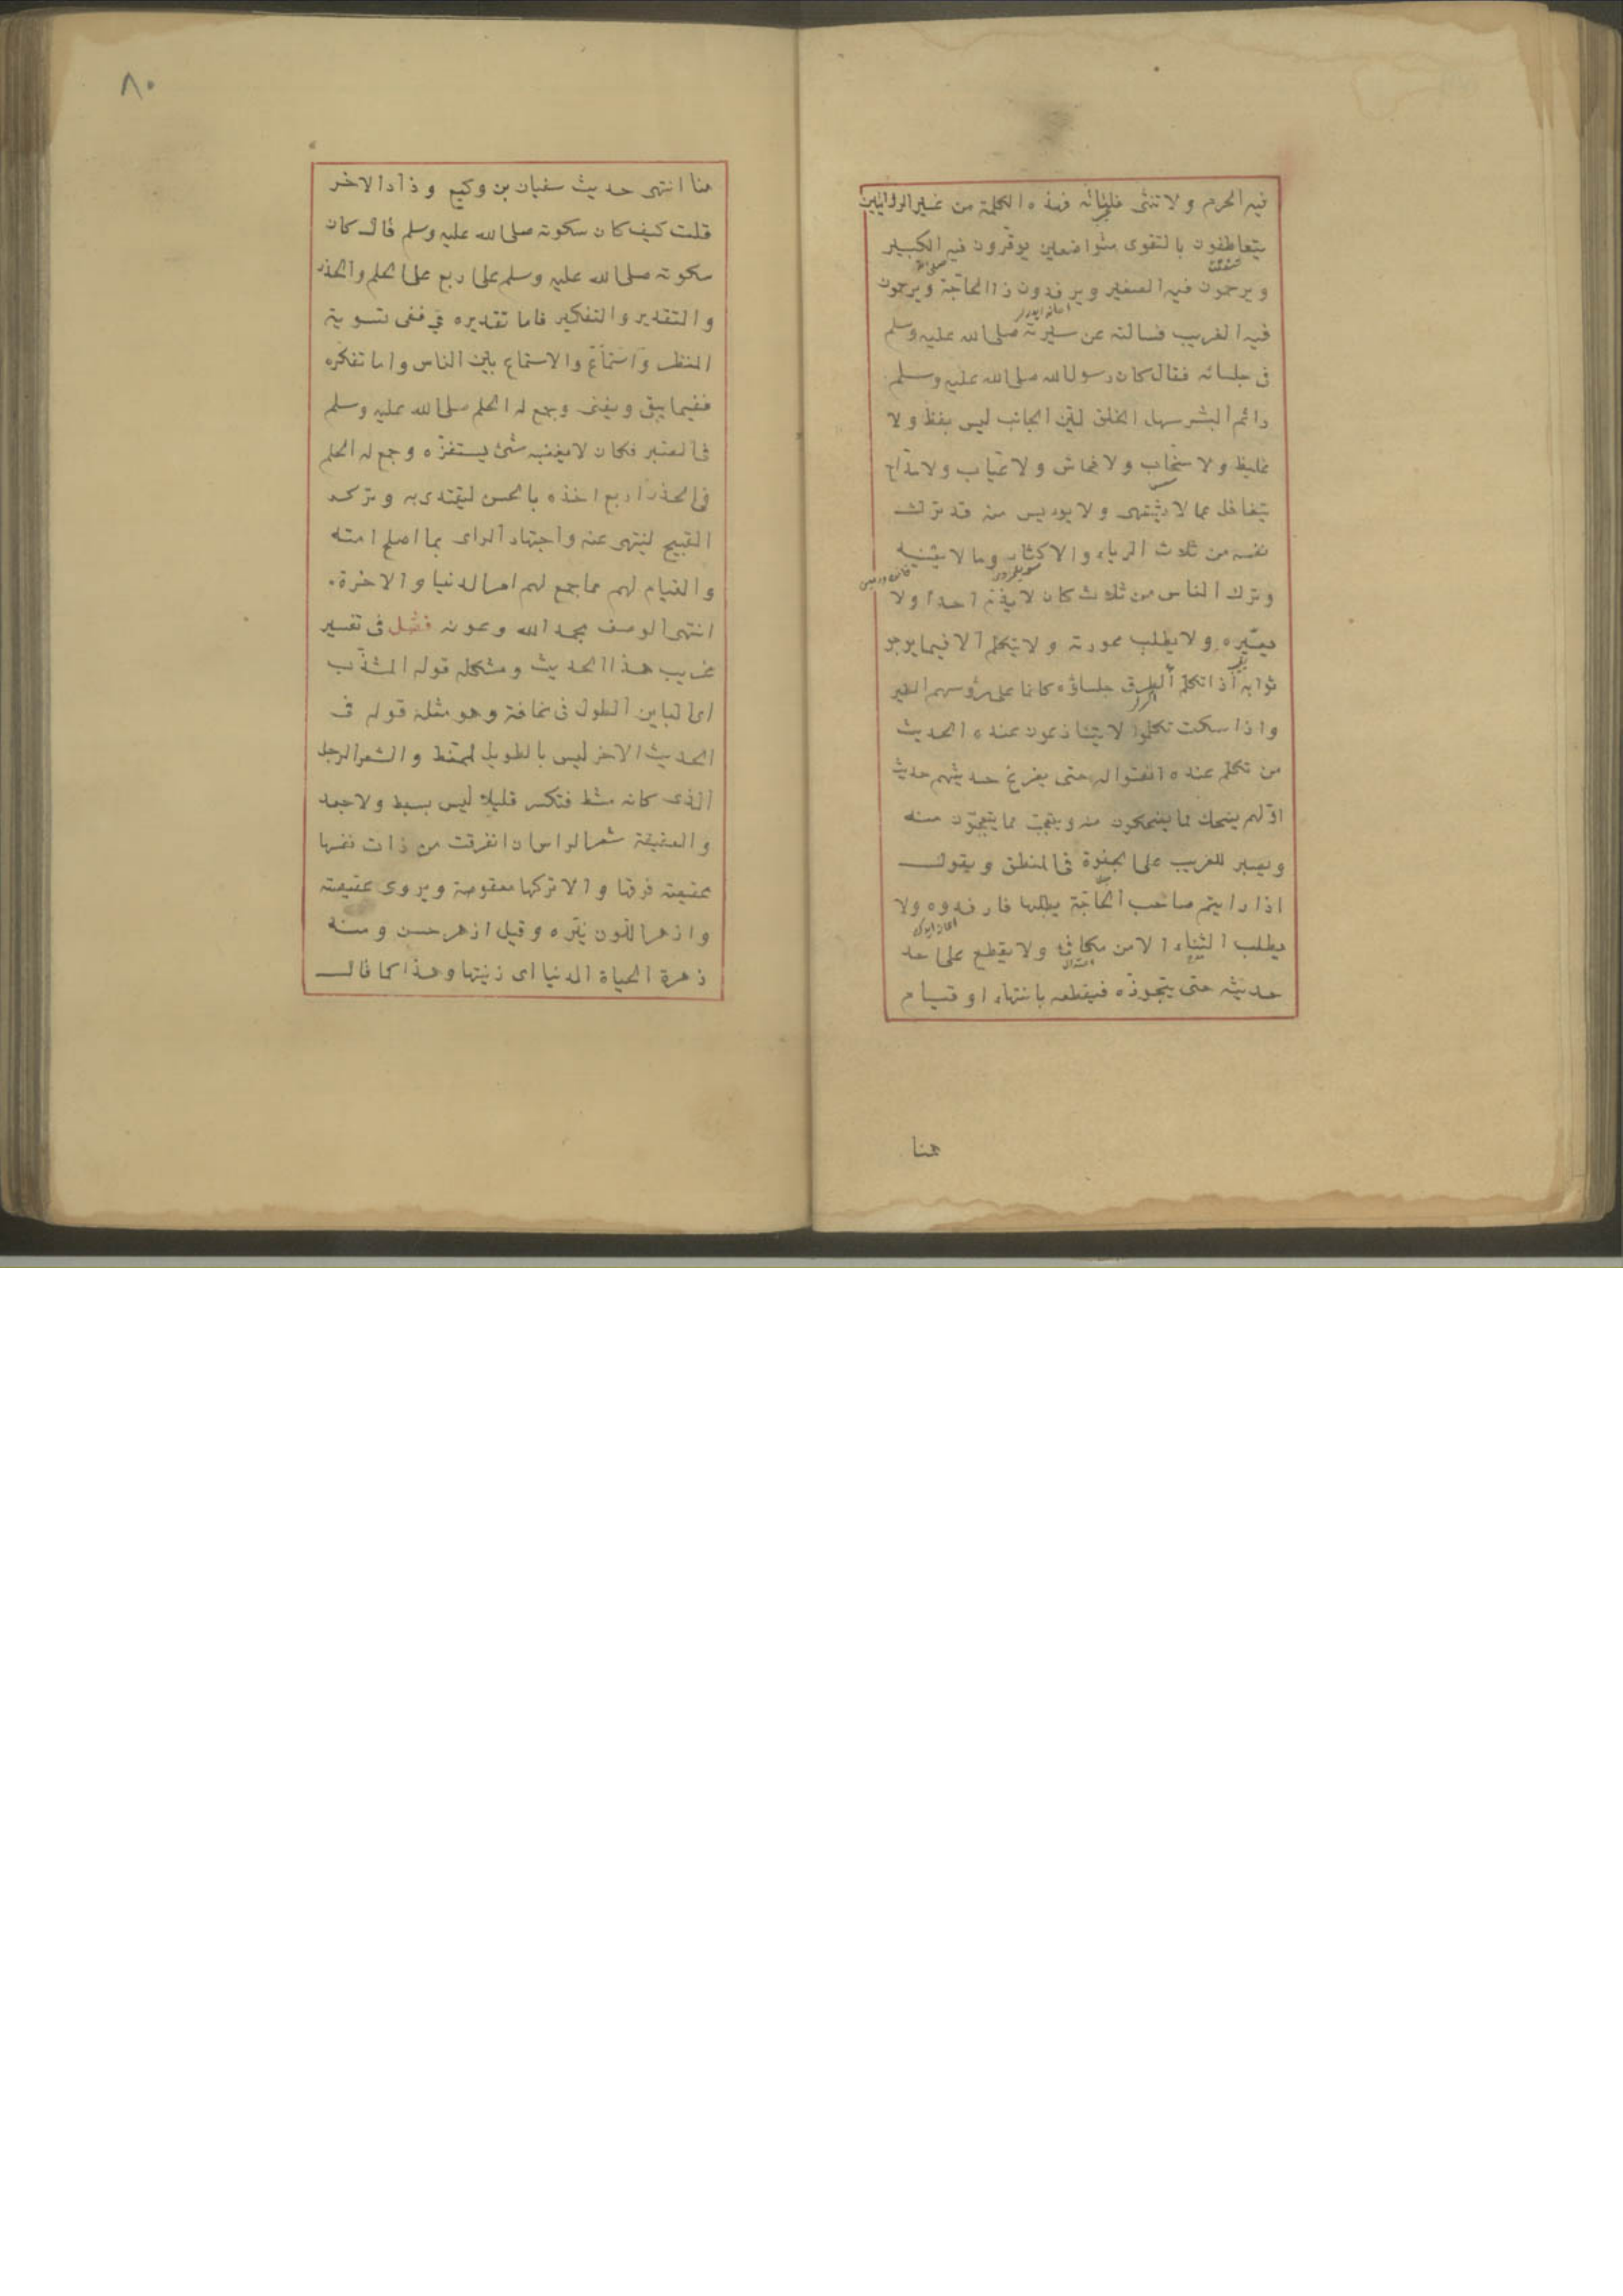 فيه الحرم ولا تنثى فلتاته فهذه الكلمة من غير الروايتين
يتعاطفون بالتقوى متواضعين يوقرون فيه الكبير
ويرحمون فيه الصغير ويرفدون ذا الحاجة ويرحمون
فيه الغريب فسالته عن سيرته صلى الله عليه وسلم
فى جلسائه فقال كان رسول الله صلى الله عليه وسلم
دائم البشر سهل الخلق لين الجانب ليس بفظ ولا
غليظ ولا سخاب ولا فحاش ولا عياب ولا مداح
يتغافل عما لا يشتهى ولا يويس منه قد ترك
نفسه من ثلاث الرياء والاكثار وما لا يعنيه
وترك الناس من ثلاث كان لا يذم احدا ولا
يعيره ولا يطلب عورته ولا يتكلم الا فيما يرجو
ثوابه اذا تكلم اطرق جلساؤه كانما على رؤسهم الطير
واذا سكت تكلموا لا يتنازعون عنده الحديث
من تكلم عنده انصتوا له حتى يفرغ حديثهم حديث
اولهم يضحك مما يضحكون منه ويتعجب مما يتعجبون منه
ويصبر للغريب على الجفوة فى المنطق ويقول
اذا رايتم صاحب الحاجة يطلبها فارفدوه ولا
يطلب الثناء الا من مكافئ ولا يقطع على احد
حديثه حتى يتجوزه فيقطعه بانتهاء او قيام
هنا
٨٠
هنا انتهى حديث سفيان بن وكيع وزاد الاخر
قلت كيف كان سكوته صلى الله عليه وسلم قال كان
سكوته صلى الله عليه وسلم على اربع على الحلم والحذر
والتقدير والتفكير فاما تقديره ففى تسوية
النظر والاستماع بين الناس واما تفكره
ففيما يبقى ويفنى وجمع له الحلم صلى الله عليه وسلم
فى الصبر فكان لا يغضبه شئ يستفزه وجمع له الحلم
فى الحذر اربع اخذه بالحسن ليقتدى به وتركه
القبيح لينتهى عنه واجتهاد الراى بما اصلح امته
والقيام لهم مما جمع لهم امر الدنيا والاخرة.
انتهى الوصف بحمد الله وعونه فصل فى تفسير
غريب هذا الحديث ومشكله قوله المشذب
اى الباين الطول فى نحافة وهو مثله قوله فى
الحديث الاخر ليس بالطويل الممغط والشعر الرجل
الذى كانه مشط فتكسر قليلا ليس بسبط ولا جعد
والعقيقة شعر الراس ان انفرقت من ذات نفسها
عقيقته فرقها والا تركها معقوصة ويروى عقيصته
وازهر اللون نيره وقيل ازهر حسن ومنه
زهرة الحياة الدنيا اى زينتها وهذا كما قال